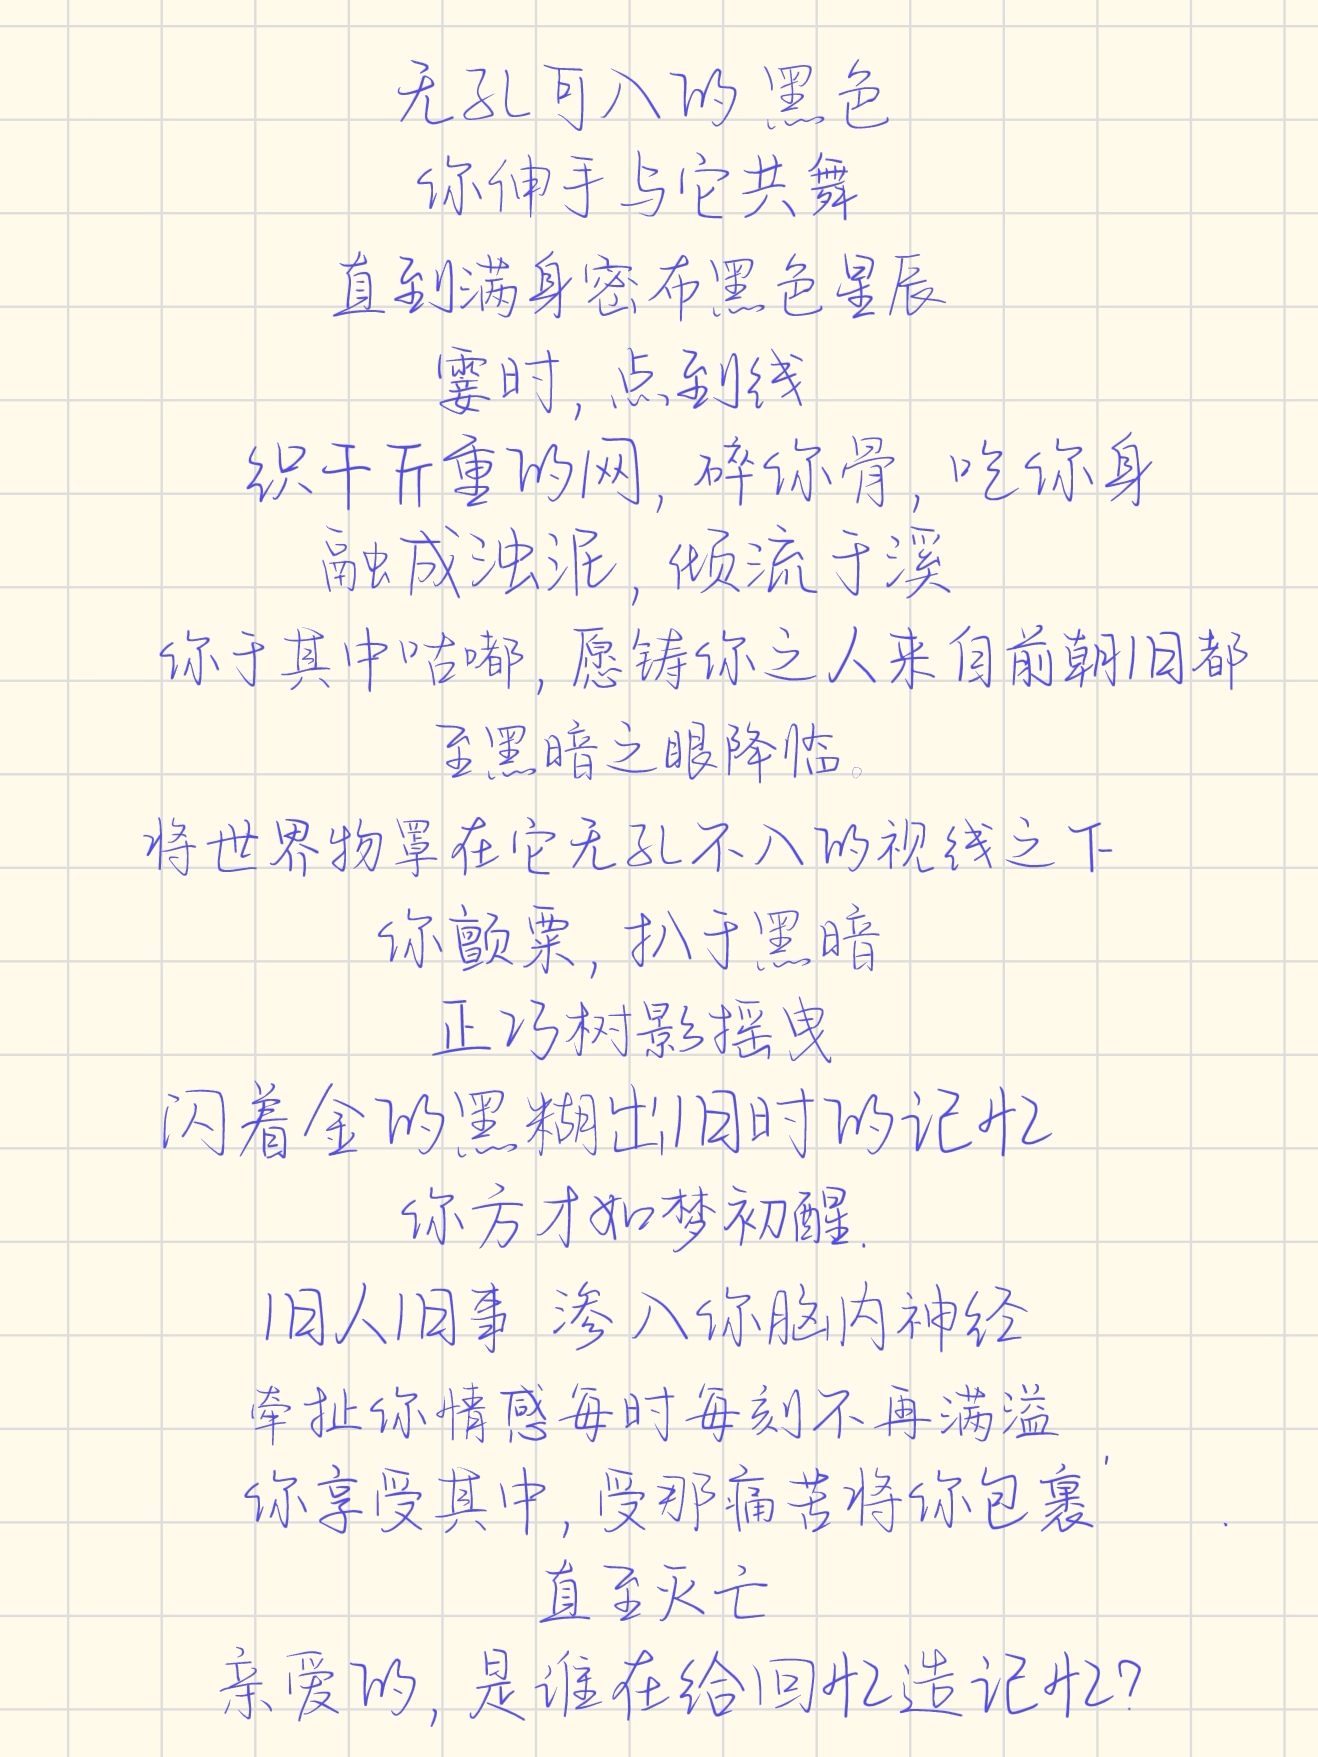 无孔可入的黑色
你伸手与它共舞
直到满身密布黑色星辰
霎时,点到线
织千斤重的网,碎你骨,吃你身
融成浊泥,倾流于溪
你于其中咕嘟,愿铸你之人来自前朝旧都
至黑暗之眼降临。
将世界物罩在它无孔不入的视线之下
你颤粟,扒于黑暗
正巧树影摇曳
闪着金的黑糊出旧时的记忆
你方才如梦初醒.
旧人旧事 渗入你脑内神经
牵扯你情感每时每刻不再满溢
你享受其中,受那痛苦将你包裹
直至灭亡
亲爱的,是谁在给回忆造记忆?